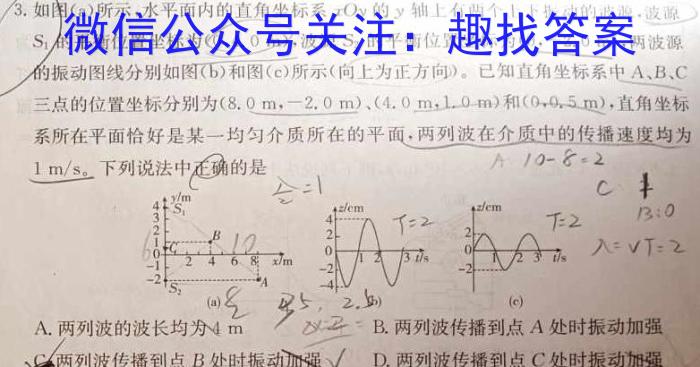 3. 如图(a)所示,水平面内的直角坐标系 xOy 的 y 轴上有两个上下振动的波源,波源
微信公众号关注：趣找答案
S₁ 的 两波源
的振动图线分别如图(b)和图(c)所示(向上为正方向)。已知直角坐标系中 A、B、C
三点的位置坐标分别为(8.0 m,−2.0 m)、(4.0 m,1.0 m)和(0,0.5 m),直角坐标
系所在平面恰好是某一均匀介质所在的平面,两列波在介质中的传播速度均为
1 m/s。下列说法中正确的是
A 10-8=2
C
B:0
λ=vT=2
y/m
4 3 2 1 0 −1 −2
S₁
B
C
A
S₂
2 4 6 8 x/m
(a)
z/cm
4 2 0 −2 −4
1 2 3 t/s
T=2
z/cm
2 0 −2
1 2 3 t/s
T=2
(c)
A. 两列波的波长均为 4 m
B. 两列波传播到点 A 处时振动加强
C. 两列波传播到点 B 处时振动加强
D. 两列波传播到点 C 处时振动加强